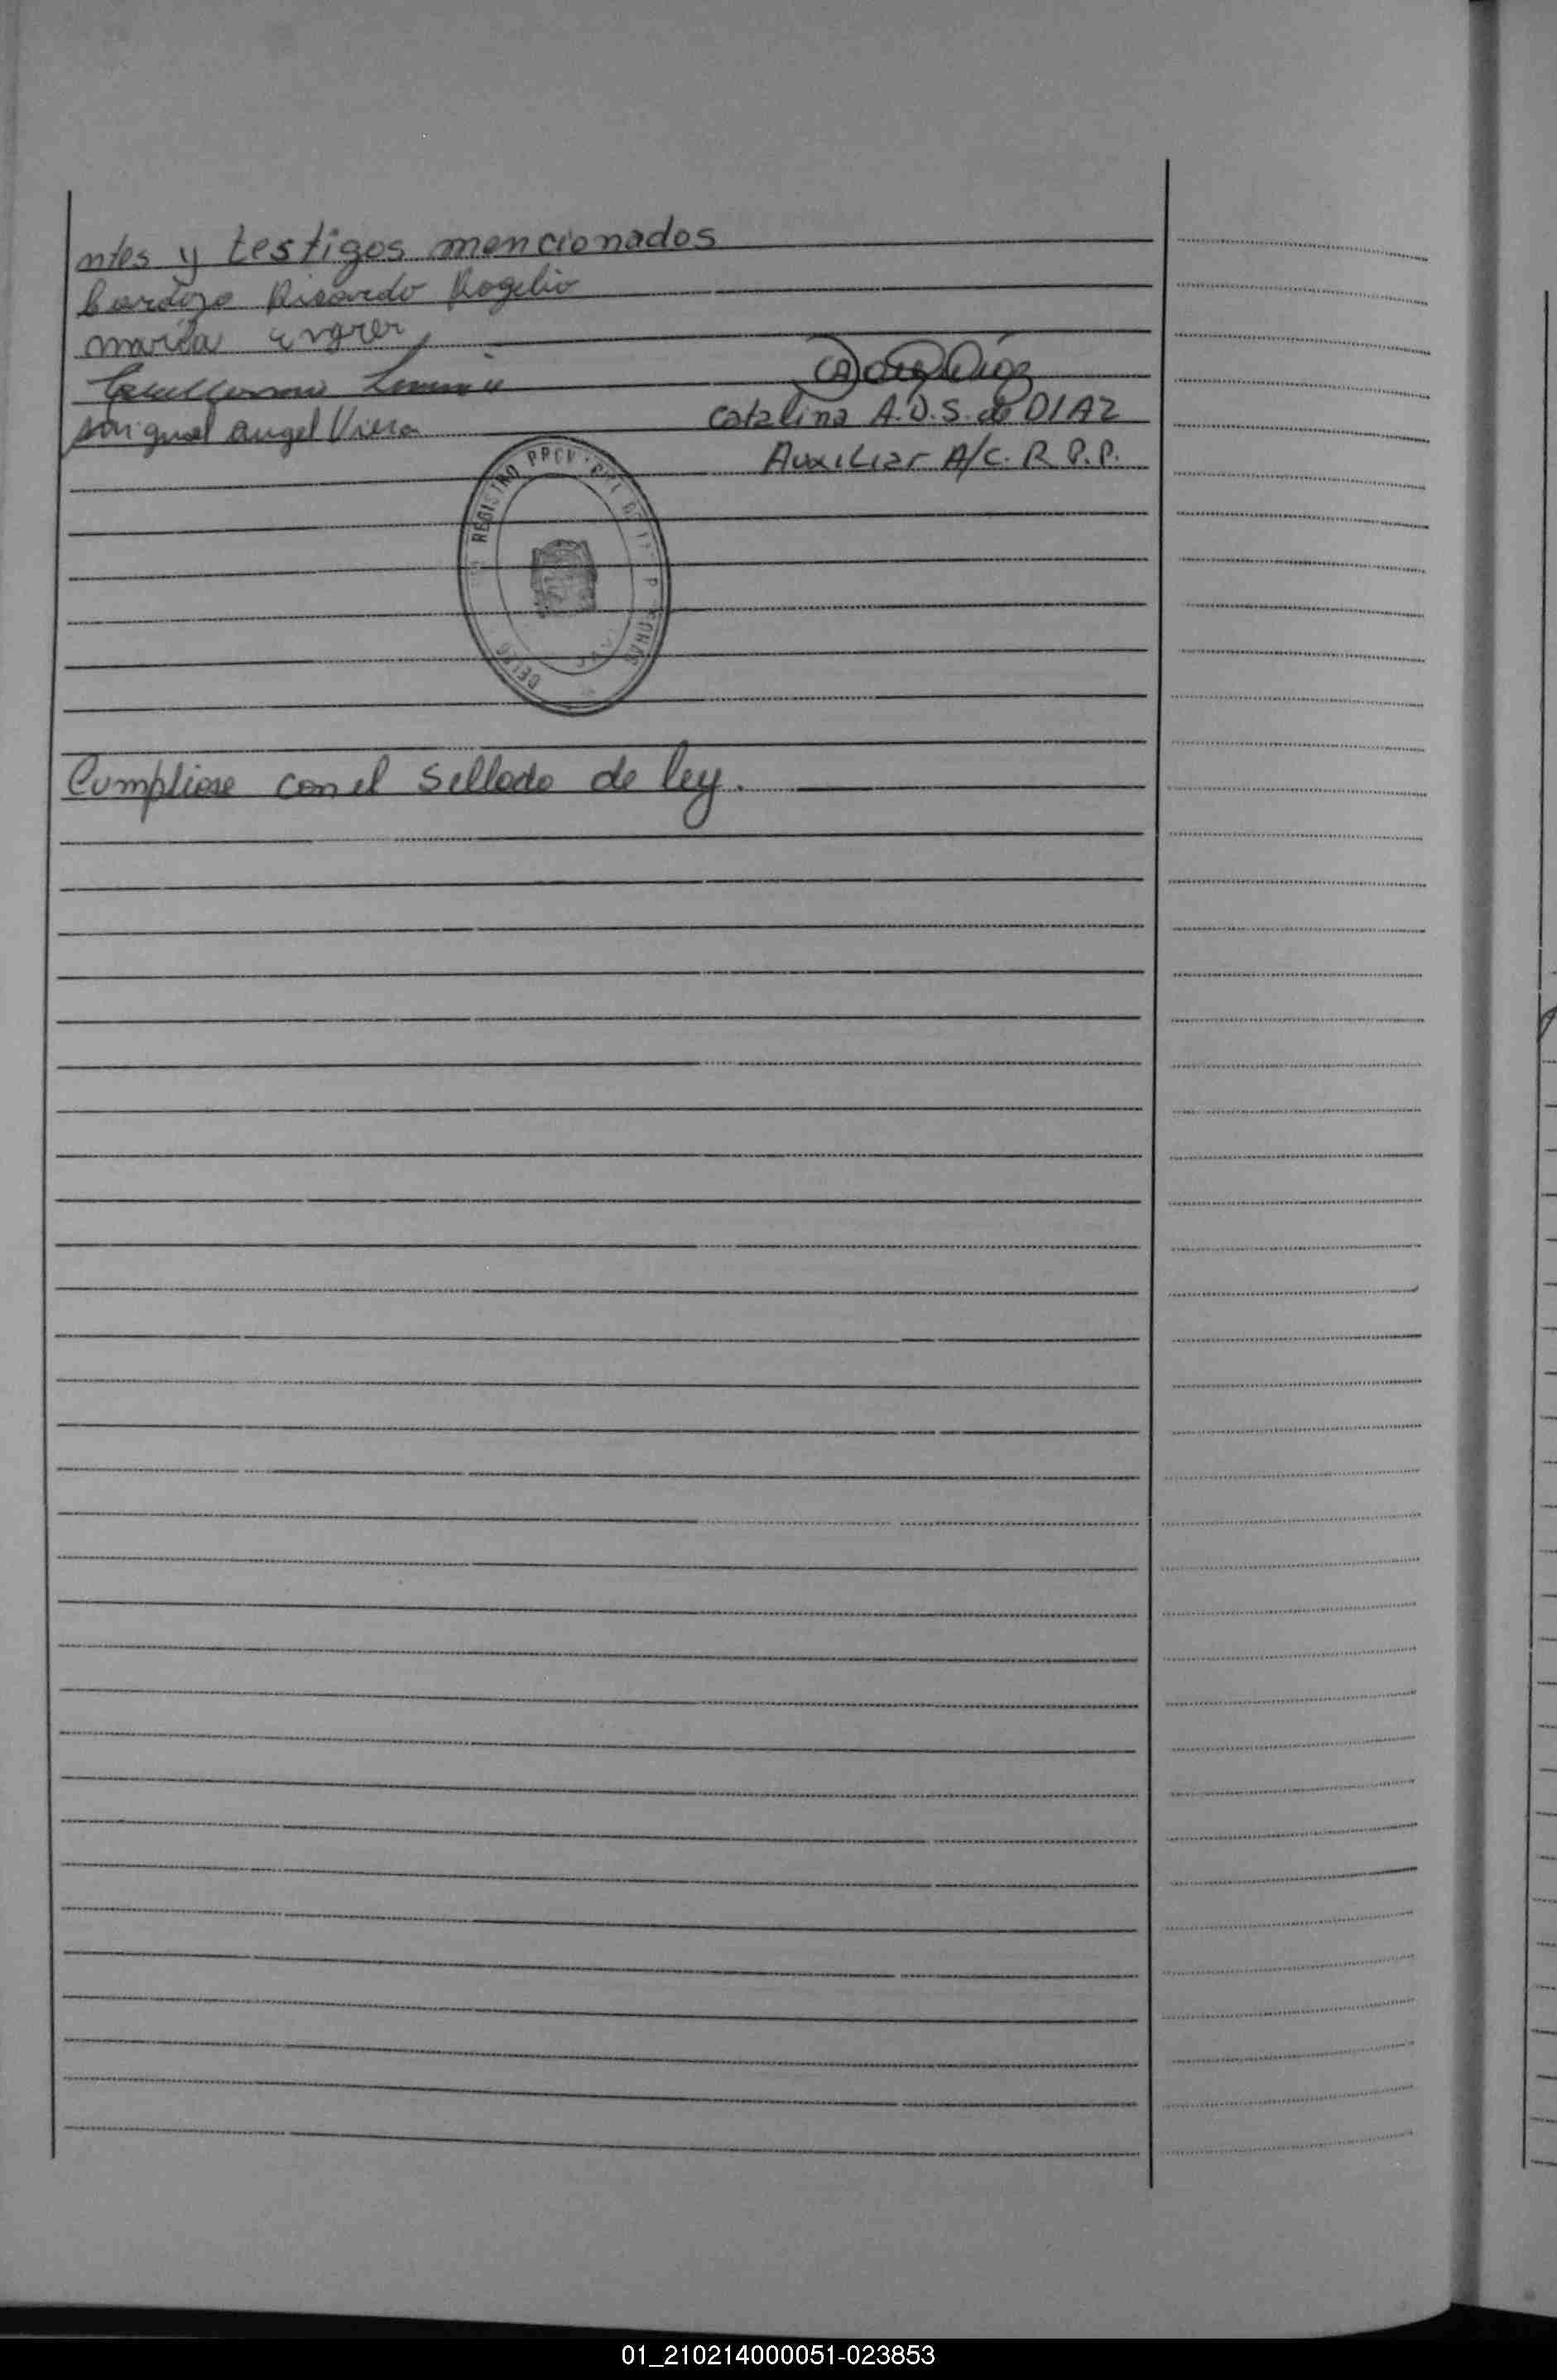 ntes y testigos mencionados
Cardozo Ricardo Rogelio
maria
Miguel angel Viera
Catalina A.D.S. de DIAZ
Auxiliar A/C. R P.P.
REGISTRO
Cumpliose con el Sellado de ley.
01_210214000051-023853